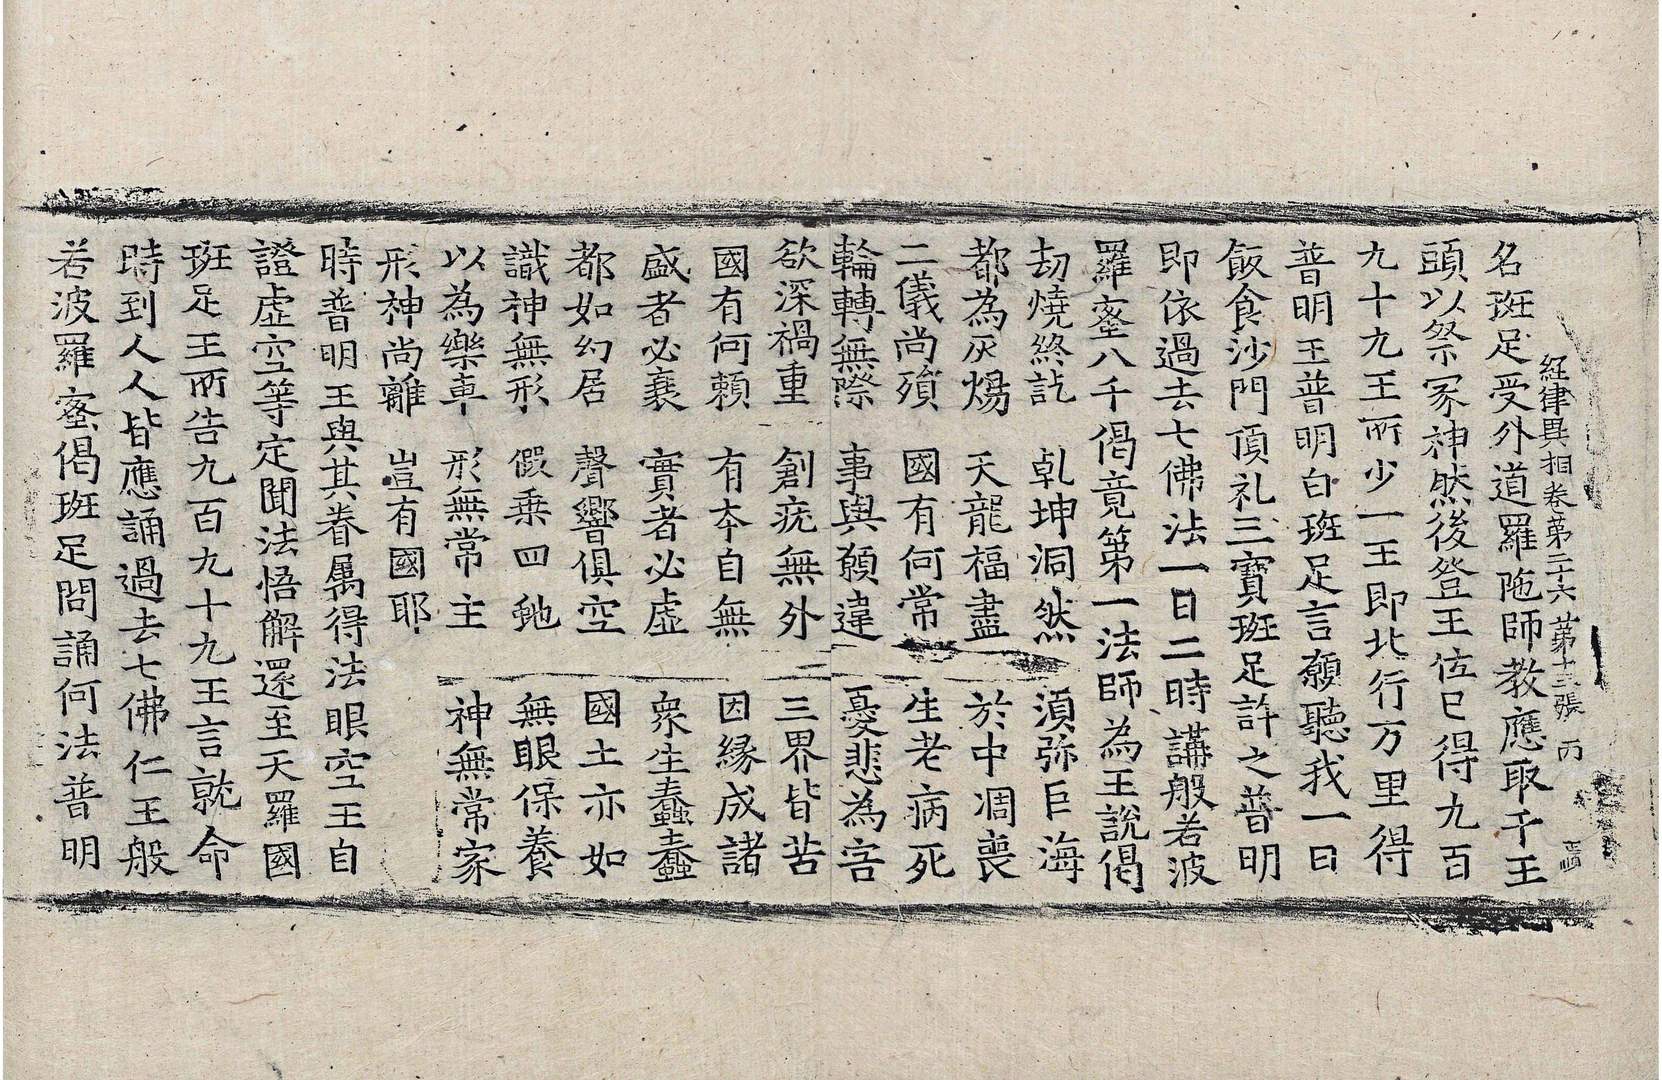 經律異相卷第二十六 第十三張 丙
名班足受外道羅陁師教應取千王
頭以祭冢神然後登王位已得九百
九十九王所少一王即北行万里得
普明王普明白班足言願聽我一日
飯食沙門頂礼三寶班足許之普明
即依過去七佛法一日二時講般若波
羅蜜八千偈竟第一法師為王說偈
劫燒終訖 乹坤洞然 湏弥巨海
都為灰煬 天龍福盡 於中凋喪
二儀尚殞 國有何常 生老病死
輪轉無際 事與願違 憂悲為害
欲深禍重 創疣無外 三界皆苦
國有何賴 有本自無 因緣成諸
盛者必衰 實者必虛 衆生蠢蠢
都如幻居 聲響俱空 國土亦如
識神無形 假乘四虵 無眼保養
以為樂車 形無常主 神無常家
形神尚離 豈有國耶
時普明王與其眷属得法眼空王自
證虛空等定聞法悟解還至天羅國
班足王所告九百九十九王言就命
時到人人皆應誦過去七佛仁王般
若波羅蜜偈班足問誦何法普明